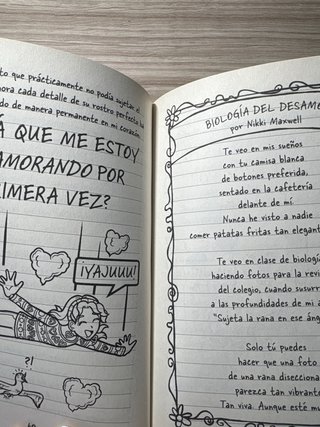 to que prácticamente no podía sujetar el
ora cada detalle de su rostro perfecto
do de manera permanente en mi corazón
Á QUE ME ESTOY
AMORANDO POR
RIMERA VEZ?
¡YAJUUU!
?!
BIOLOGÍA DEL DESAM
por Nikki Maxwell
Te veo en mis sueños
con tu camisa blanca
de botones preferida,
sentado en la cafetería
delante de mí.
Nunca he visto a nadie
comer patatas fritas tan elegant
Te veo en clase de biología
haciendo fotos para la revi
del colegio, cuando susurr
a las profundidades de mi a
"Sujeta la rana en ese áng
Solo tú puedes
hacer que una foto
de una rana disecciona
parezca tan vibrante
Tan viva. Aunque esté mu